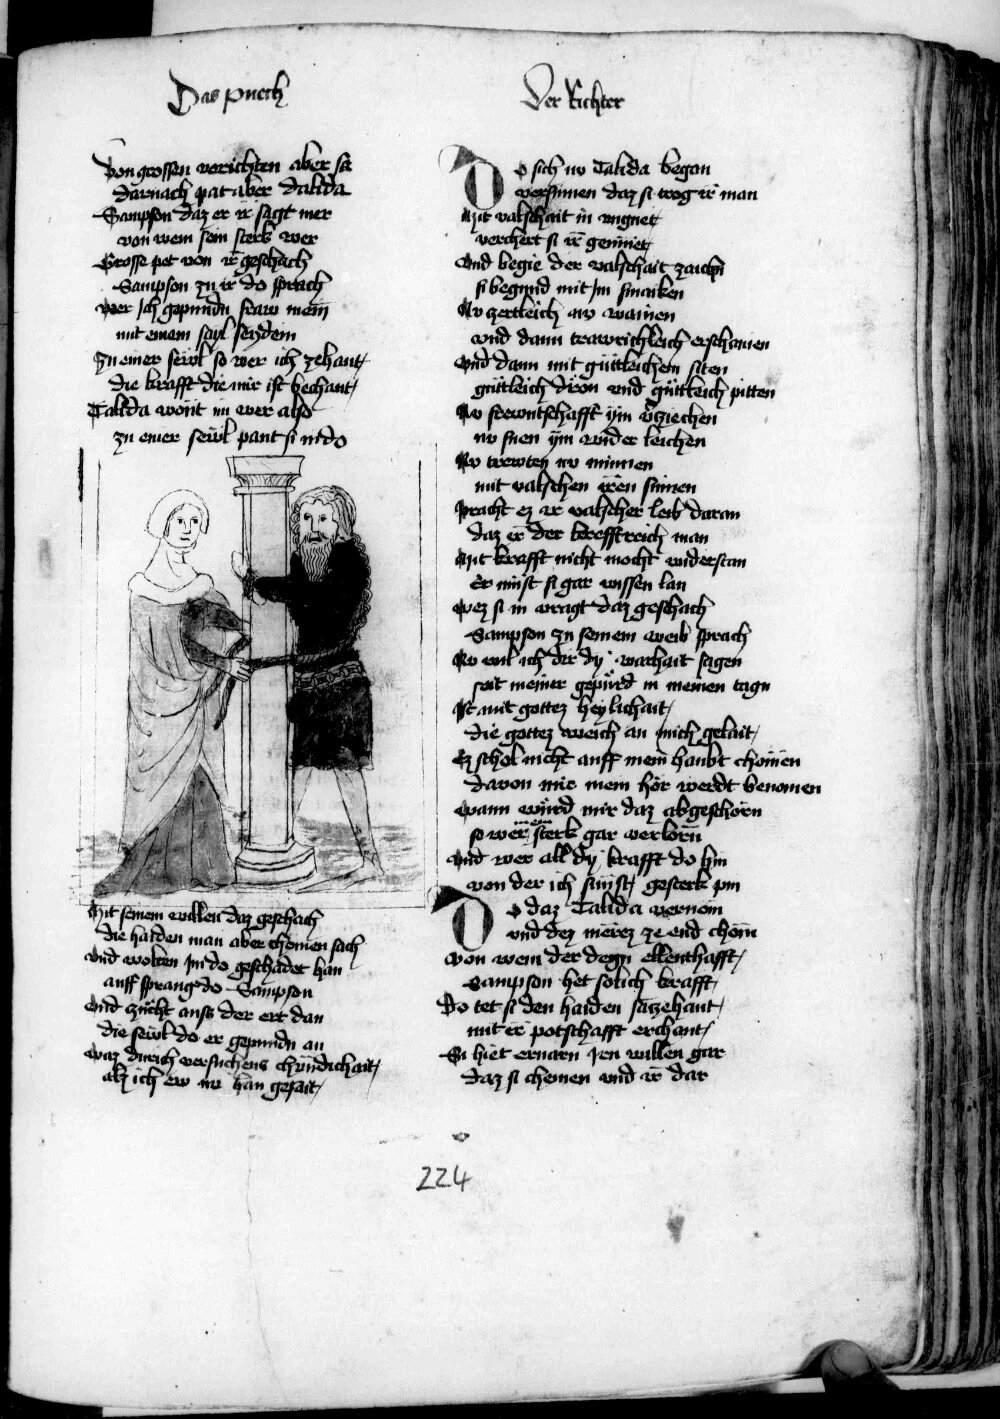 Das puech
Der Richter
Von grossen vorichten aber sa
darnach pat aber dalida
Sampson daz er ir sagt mer
von wem sein sterk wer
Grosse pet von ir geschach
Sampson zu ir do sprach
wer ich gepundn fraw mein
mit einem sayl seydem
Zu einer sewl so wer ich zehant
die krafft die mir ist bechant
Talida wont im wer also
zu einer sewl pant si in do
Mit seinem willen daz geschach
die haiden man aber chomen sach
und wolten im do geschadet han
auff sprang do Sampson
und zucht auss der ert dan
die sewl do er gepundn an
waz durich versuchens chundichait
alz ich ew nu han gesait
Do sich nu Talida began
versinnen daz si trog ir man
Mit valschait in
verchert si ir gemuet
und begie der valschait zaichn
si begund mit im smaiken
Nu zertleich nu wainen
und dann trawrichleich erschainen
und dann mit güttleichem siten
güttleich dron und güttleich pitten
Nu frewntschafft ym vrziechen
nu smen ym wider leichen
Nu trewten nu minnen
mit valschen iren sinnen
pracht ez ir valscher leib daran
daz er der krefftreich man
Mit krafft nicht mocht widerstan
Er must si gar wissen lan
wez si in vragt daz geschach
Sampson zu seinem weib sprach
Nu wil ich dir dy warhait sagen
seit meiner gepürd in meinen tagn
Ist mit gottez heylichait
die gottez weich an mich gelait
Ez schol nicht auff mein haubt chomen
davon mir mein hor werdt benomen
wann würd mir daz abgeschorn
so wer mein sterk gar verlorn
und wer all dy krafft do hin
von der ich sunst gesterk pin
Do daz Talida vernom
und dez merez ze end chom
von wem der degn ellenthafft
Sampson het solich krafft
Do tet si den haiden sazehant
mit ir potschafft erchant
Si hiet ervarn iren willen gar
daz si chemen und ir dar
224